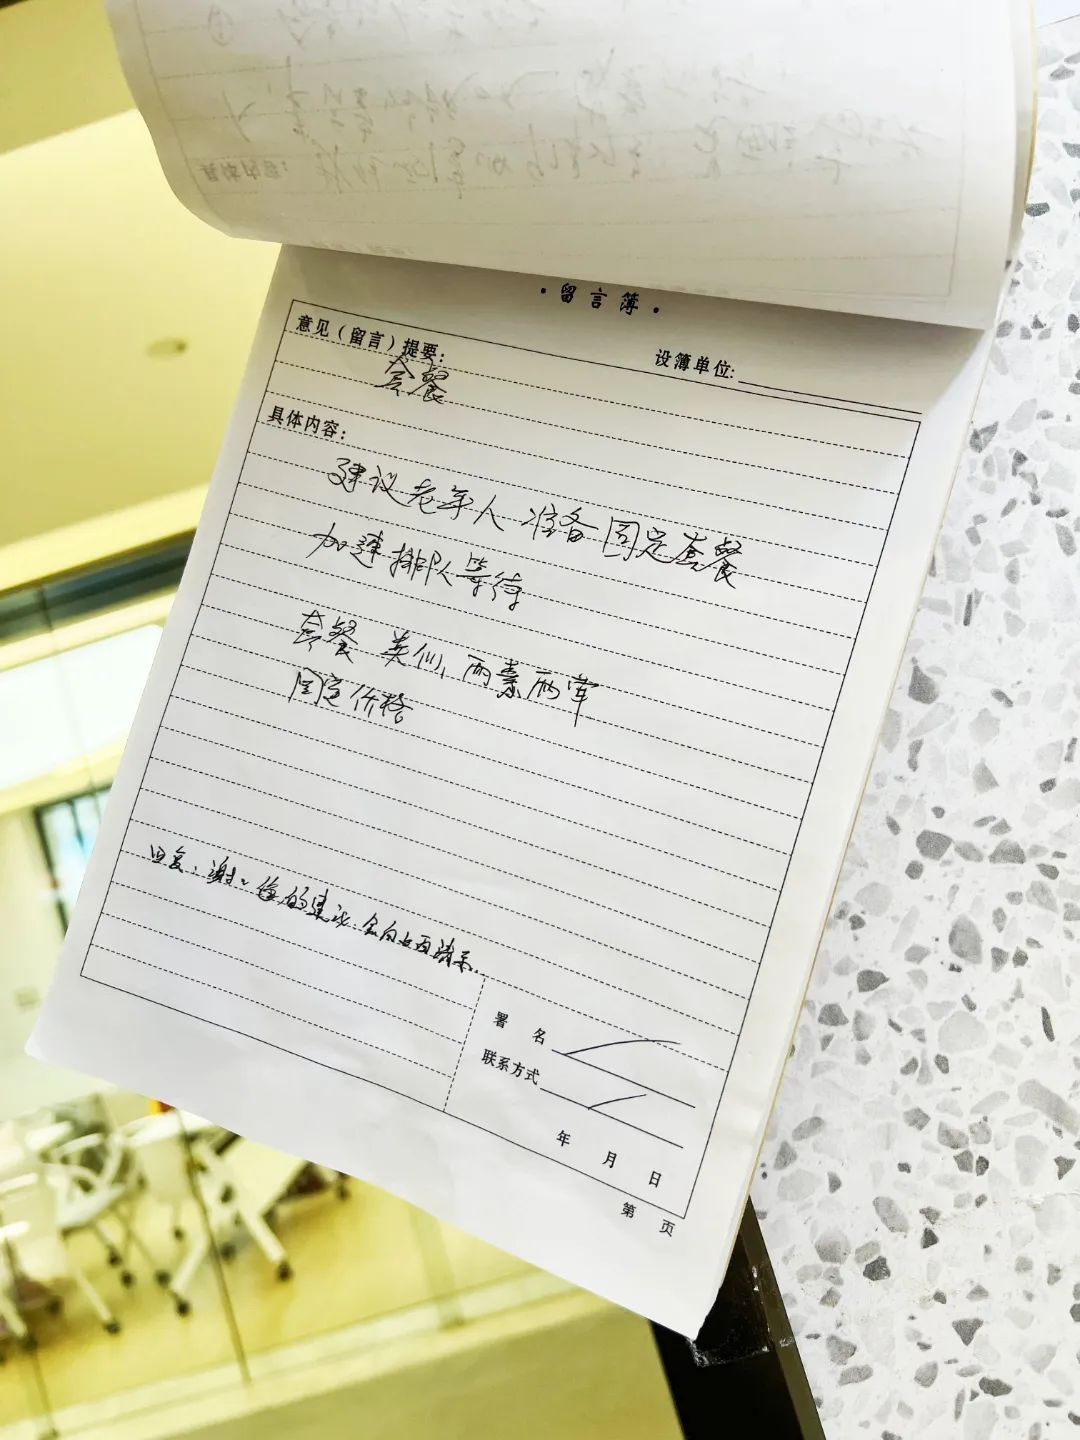 ·留言簿·
设簿单位:
意见（留言）提要:
套餐
具体内容:
建议老年人准备固定套餐
加速排队等待
套餐类似、两素两荤
固定价格
回复：谢谢您的建议，会向上面请示.
署 名
联系方式
年 月 日
第 页